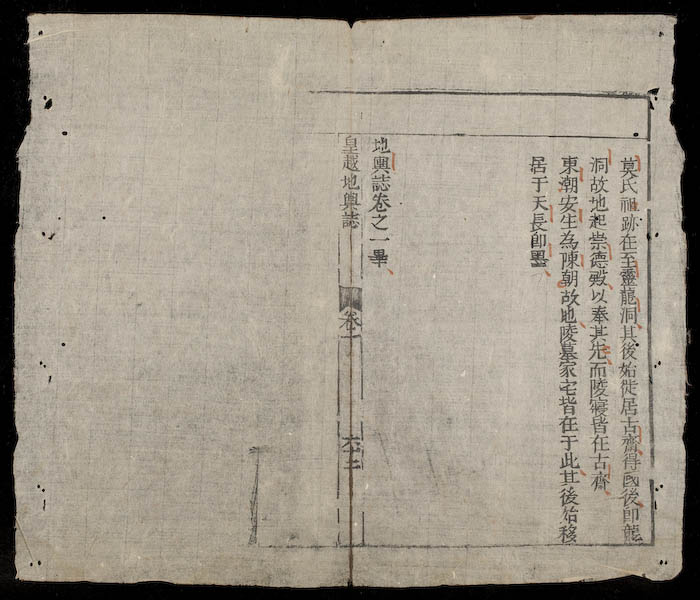 莫氏祖跡在至靈龍洞其後始徙居古齋得國後即龍
洞故地起崇德殿以奉其先而陵寢皆在古齋
東潮安生為陳朝故地陵墓家宅皆在于此其後始移
居于天長即墨
地輿誌卷之一畢
皇越地輿誌
卷一
六十二